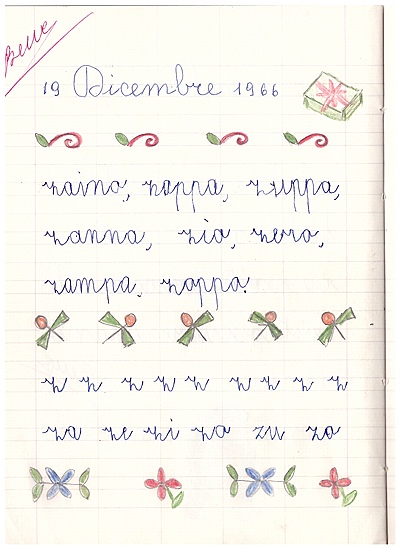 Bene
19 Dicembre 1966
zaino, zappa, zuppa,
zanna, zio, zero,
zampa, zoppa.
z z z z z z z z z
za ze zi zo zu za